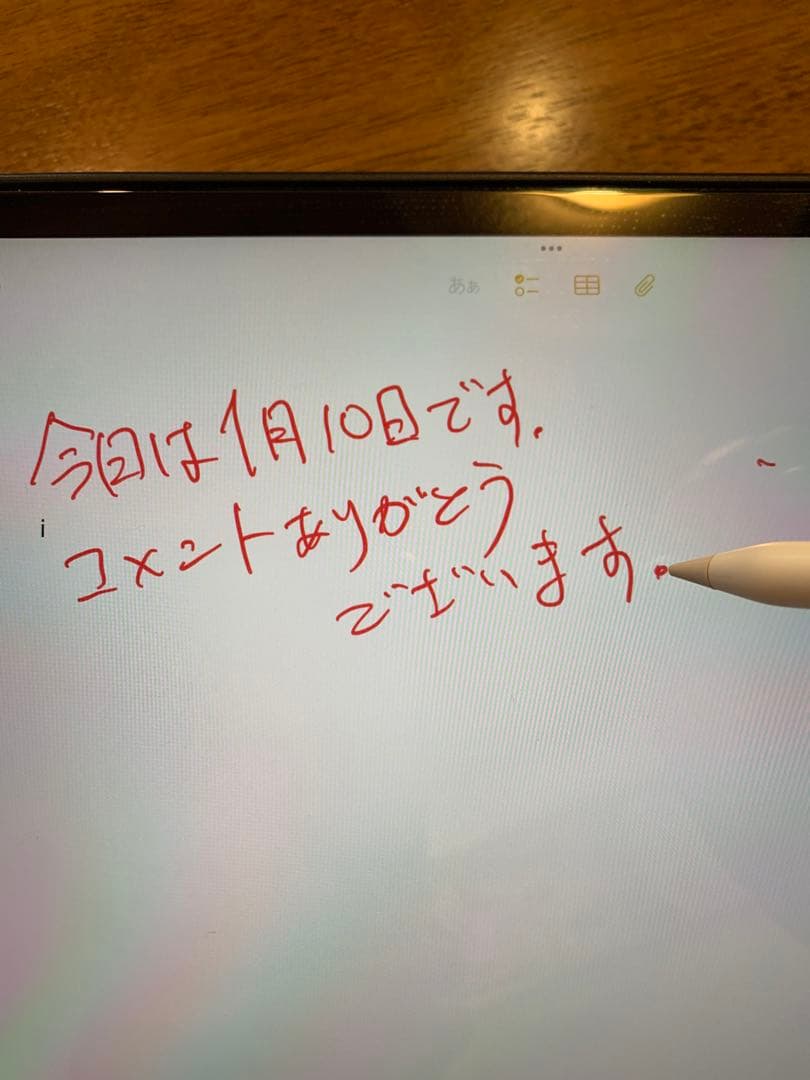 あぁ
今日は1月10日です.
i
コメントありがとう
ございます.